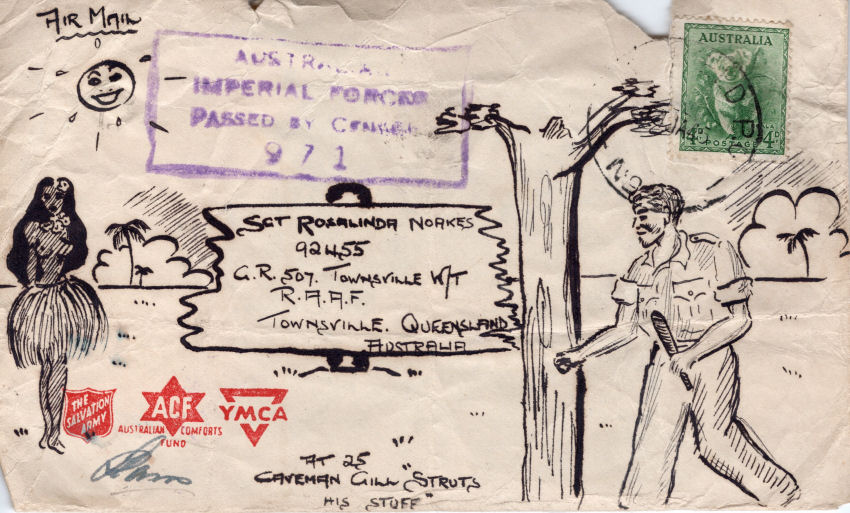 AIR MAIL
AUSTRALIAN
IMPERIAL FORCES
PASSED BY CENSOR
971
AUSTRALIA
4D 4D
POSTAGE
SGT ROSALINDA NOAKES
92455
G.R. 507. TOWNSVILLE W/T
R.A.A.F.
TOWNSVILLE. QUEENSLAND
AUSTRALIA
THE SALVATION ARMY
ACF
AUSTRALIAN COMFORTS FUND
YMCA
AT 25
CAVEMAN GILL "STRUTS
HIS STUFF"